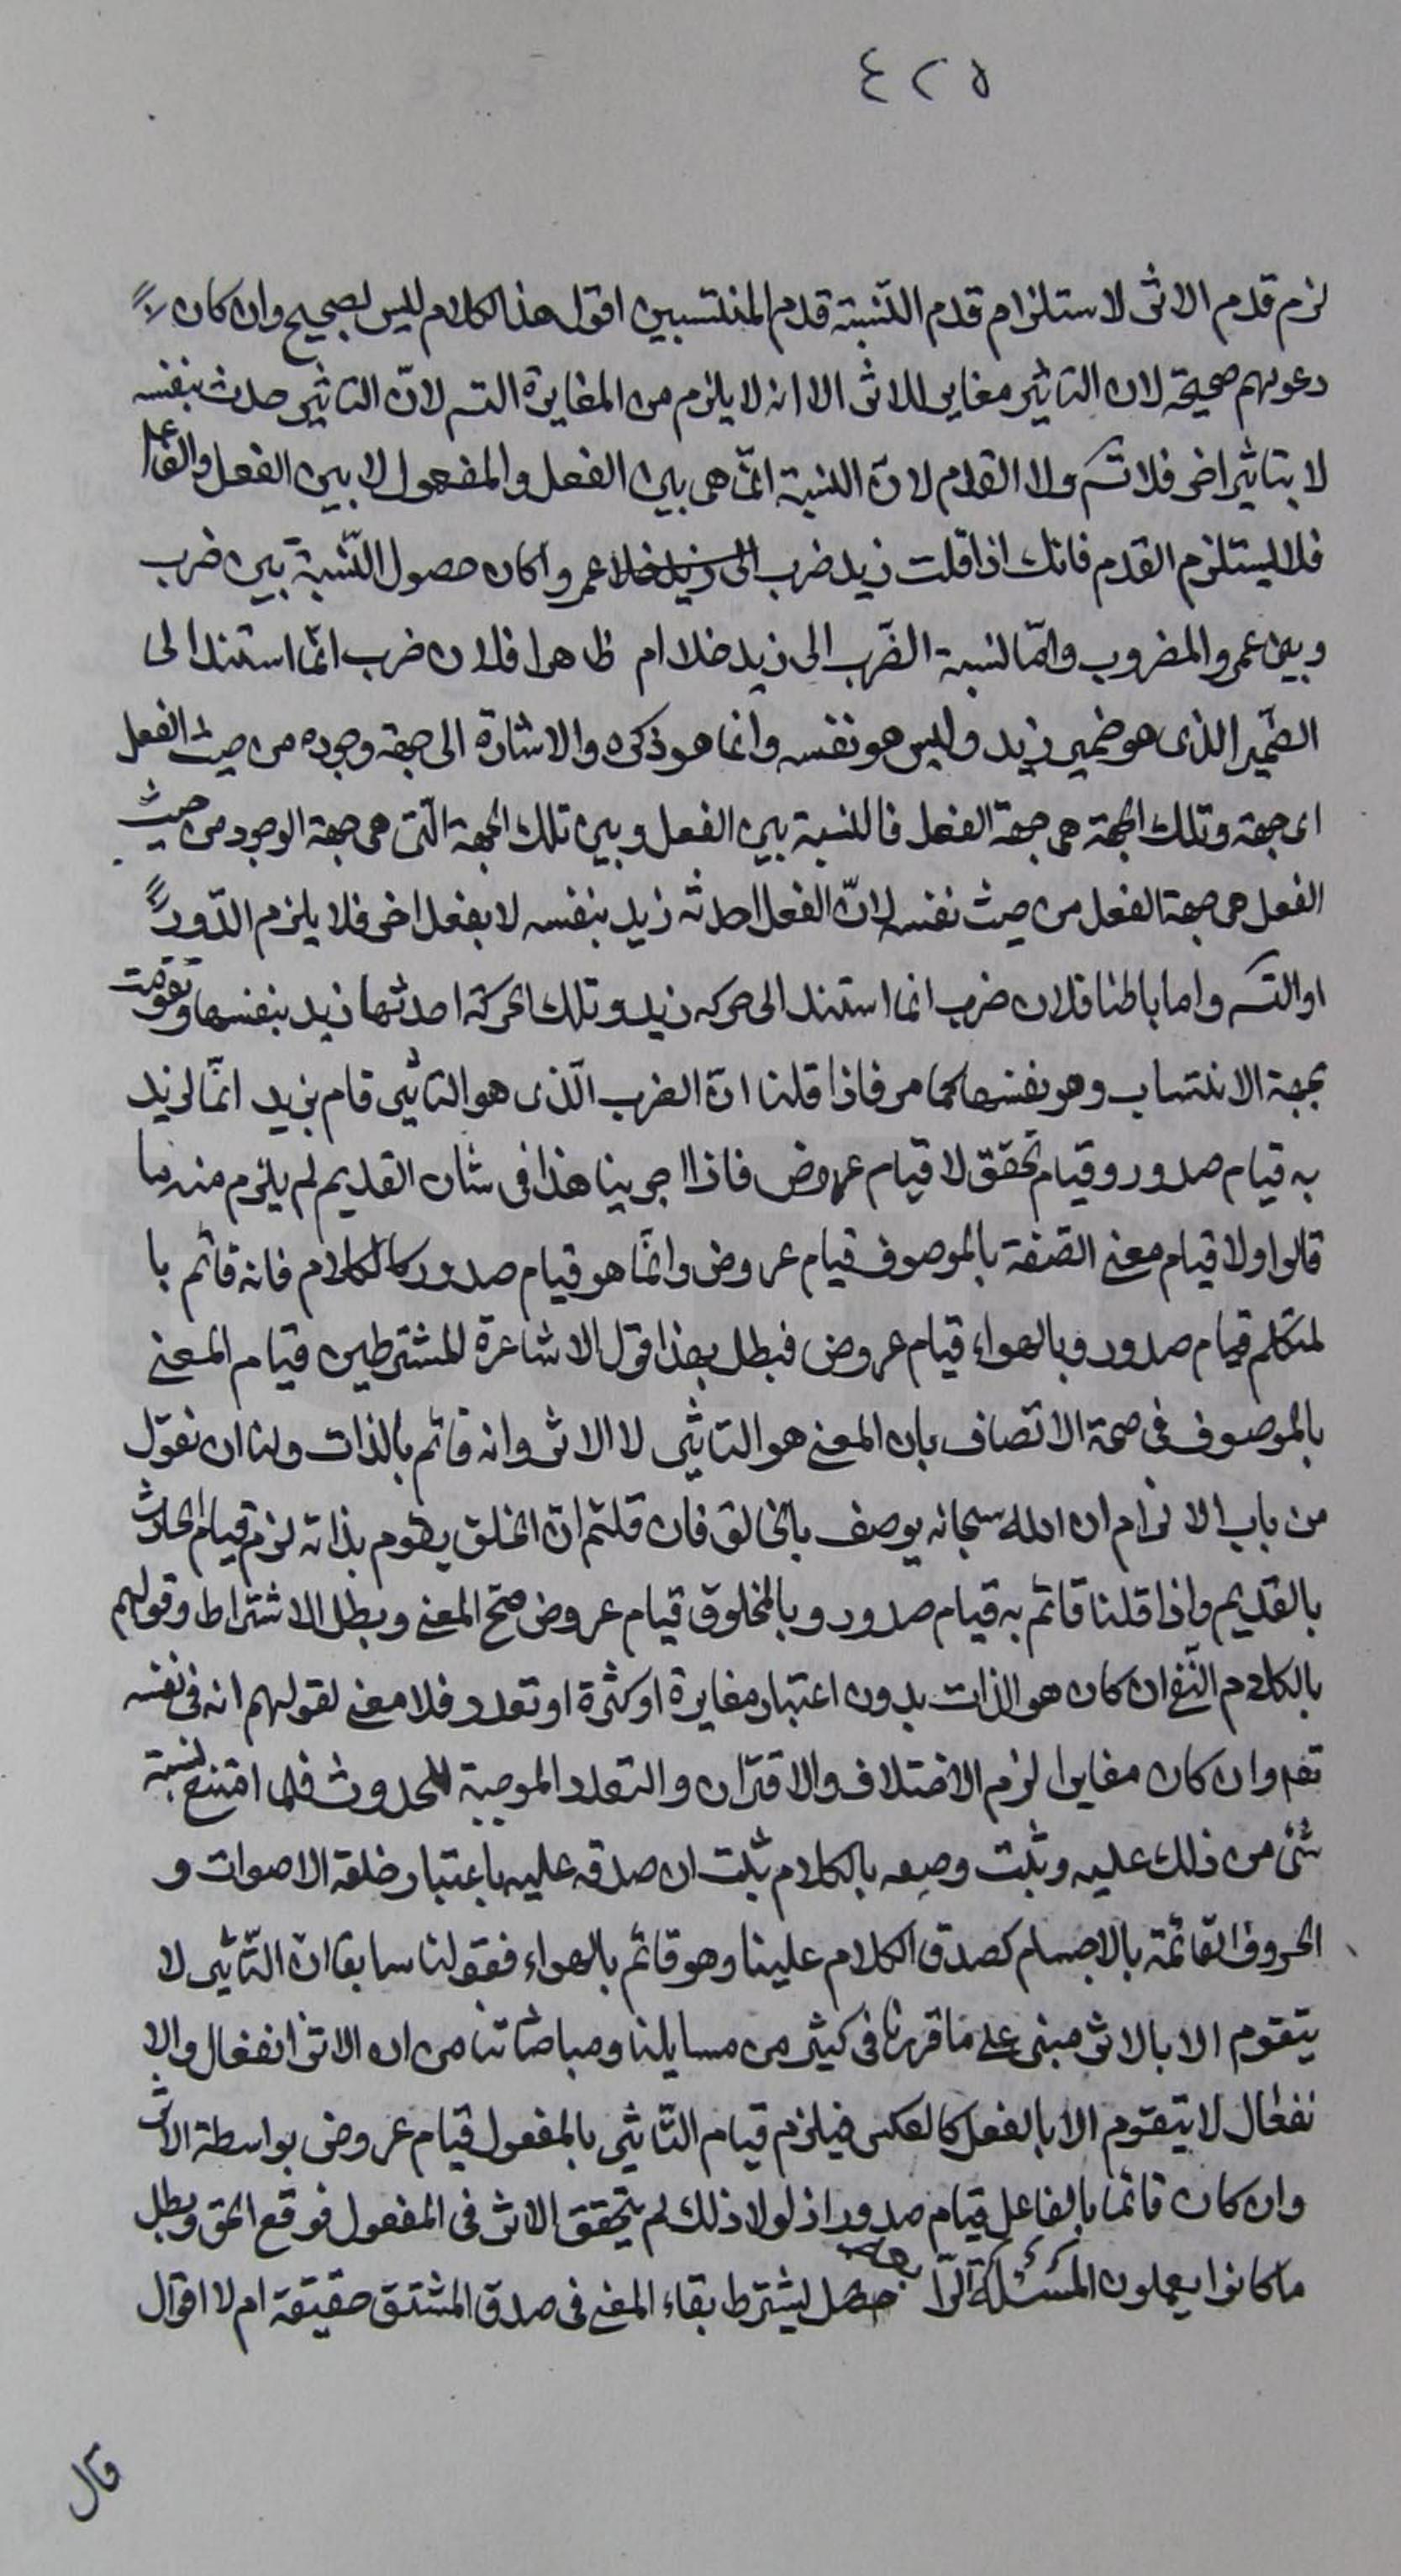 ٤٢٥
لزم قدم الاثر لاستلزام قدم النسبة قدم المنتسبين اقول هذا الكلام ليس بصحيح وان كان
دعويهم صحيحة لان التاثير مغاير للاثر الا انه لا يلزم من المغايرة التس لانّ التاثير حدث بنفسه
لا بتاثير اخر فلا تس ولا القدم لانّ النسبة انّما هى بين الفعل والمفعول لا بين الفعل والفاعل
فلا يستلزم القدم فانك اذا قلت زيد ضرب عمروا كان حصول النّسبة بين ضرب
وبين عمرو المضروب وامّا نسبة الضّرب الى زيد فلا ام ظاهرا فلان ضرب انّما استند الى
الضّمير الذى هو ضمير زيد وليس هو نفسه وانما هو ذكره والاشارة الى جهة وجوده من حيث الفعل
اى جهة وتلك الجهة هى جهة الفعل فالنسبة بين الفعل وبين تلك الجهة الّتى هى جهة الوجود من حيث
الفعل هى جهة الفعل من حيث نفسه لانّ الفعل احدثه زيد بنفسه لا بفعل اخر فلا يلزم الدّور
او التس واما باطنا فلان ضرب انما استند الى حركة زيد وتلك الحركة احدثها زيد بنفسها وتقومت
بجهة الانتساب وهو نفسها كما مر فاذا قلنا انّ الضرب الّذى هو التاثير قام بزيد انّما نريد
به قيام صدور وقيام تحقق لا قيام عروض فاذا اجرينا هذا فى شان القديم لم يلزم منه ما
قالوا ولا قيام معنى الصّفة بالموصوف قيام عروض وانّما هو قيام صدور كالكلام فانه قائم با
لمتكلم قيام صدور وبالهواء قيام عروض فبطل بهذا قول الاشاعرة المشترطين قيام المعنى
بالموصوف فى صحة الاتصاف بان المعنى هو التاثير لا الاثر وانه قائم بالذات ولنا ان نقول
من باب الالزام ان الله سبحانه يوصف بالخالق فان قلتم انّ الخلق يقوم بذاته لزم قيام الحادث
بالقديم واذا قلنا قائم به قيام صدور وبالمخلوق قيام عروض صحّ المعنى وبطل الاشتراط وقولهم
بالكلام النّفسى ان كان هو الذات بدون اعتبار مغايرة او كثرة او تعدد فلا معنى لقولهم انه فى نفسه
وان كان مغايرا لزم الاختلاف والاقتران والتعدد الموجبة للحدوث فلما امتنع نسبة
شئ من ذلك عليه وثبت وصفه بالكلام ثبت ان صدقه عليه باعتبار خلقه الاصوات و
الحروف القائمة بالاجسام كصدق الكلام علينا وهو قائم بالهواء فقولنا سابقا انّ التّاثير لا
يتقوم الا بالاثر مبنى على ما قررنا فى كثير من مسايلنا ومباحثاتنا من ان الاثر انفعال والا
نفعال لا يتقوم الا بالفعل كالعكس فيلزم قيام التّاثير بالمفعول قيام عروض بواسطة الاثر
وان كان قائما بالفاعل قيام صدور اذ لولا ذلك لم يتحقق الاثر فى المفعول فوقع الحق وبطل
ما كانوا يعملون المسئلة هل يشترط بقاء المعنى فى صدق المشتق حقيقة ام لا اقوال
قال